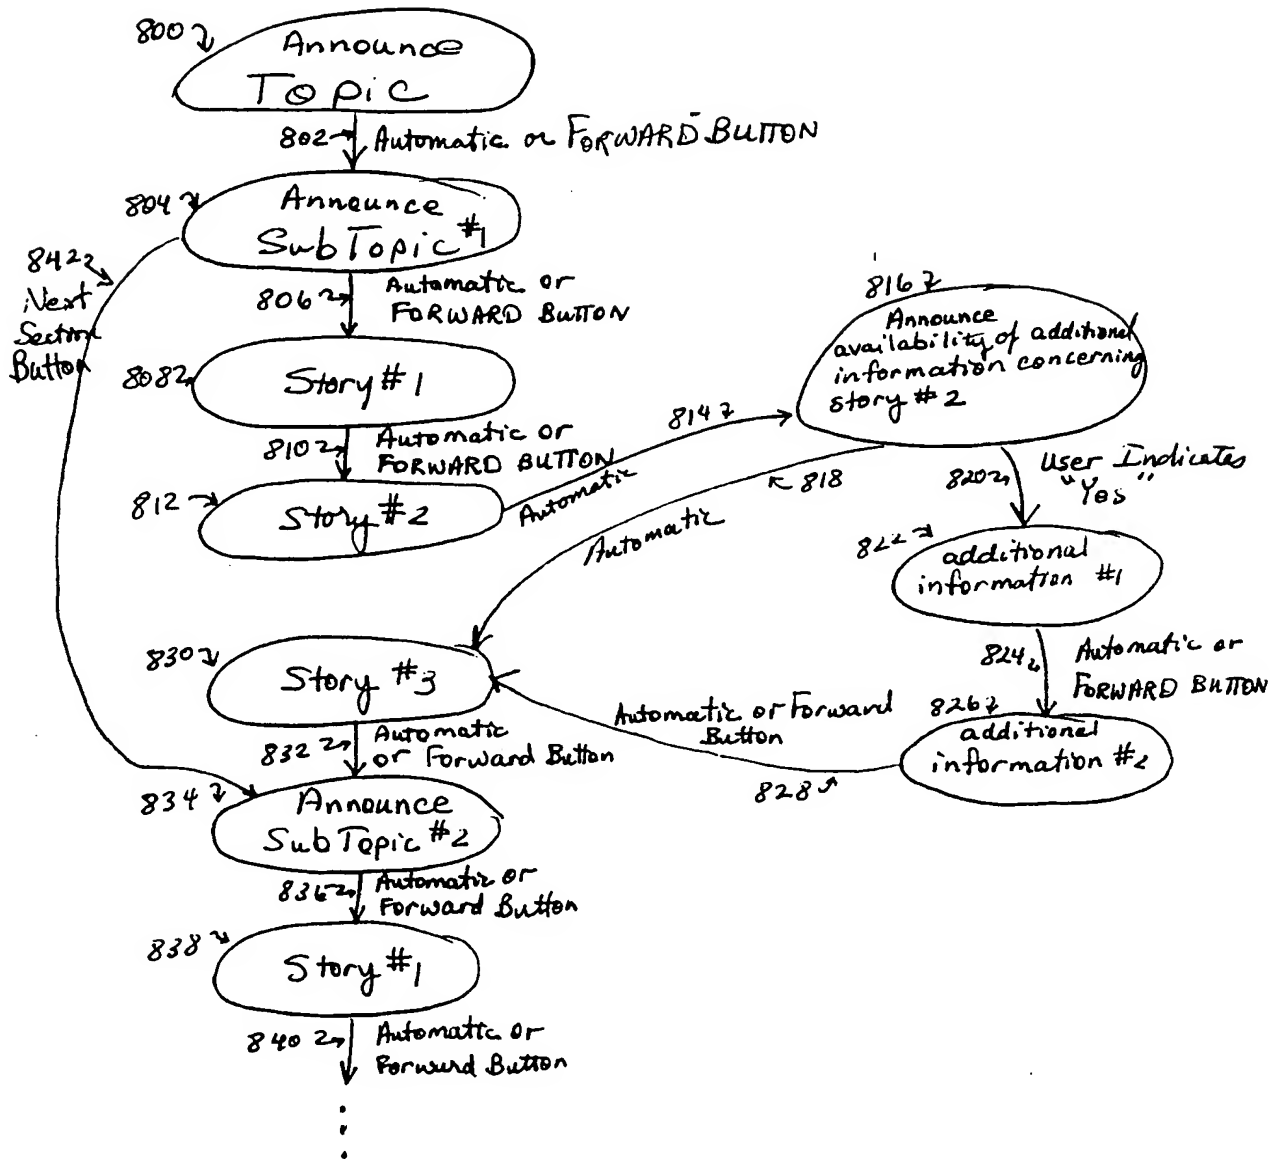 800
Announce
Topic
802 Automatic or FORWARD BUTTON
804
Announce
SubTopic #1
842
Next
Section
Button
806 Automatic or
FORWARD BUTTON
808
Story #1
810 Automatic or
FORWARD BUTTON
812
Story #2
814
Automatic
816
Announce
availability of additional
information concerning
story #2
818
Automatic
820 User Indicates
"Yes"
822
additional
information #1
824 Automatic or
FORWARD BUTTON
826
additional
information #2
Automatic or Forward
Button
828
830
Story #3
832 Automatic
or Forward Button
834
Announce
SubTopic #2
836 Automatic or
Forward Button
838
Story #1
840 Automatic or
Forward Button